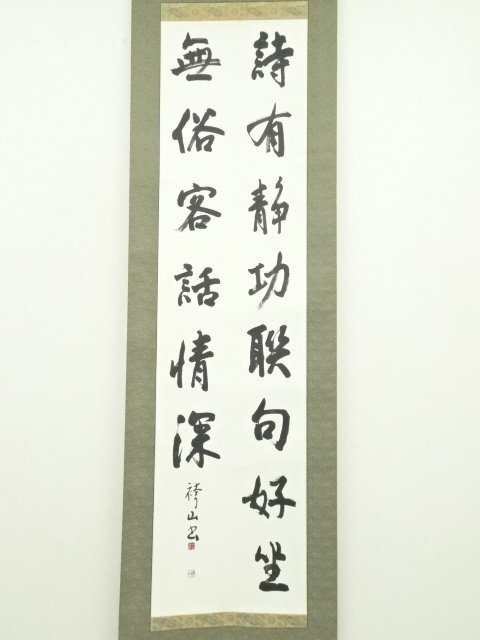 詩有静功聯句好坐
無俗客話情深
山書